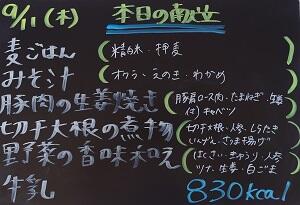 9/11 (木) 本日の献立
麦ごはん (精白米・押麦)
みそ汁 (オクラ・えのき・わかめ)
豚肉の生姜焼き (豚肩ロース肉・たまねぎ・生姜
付)キャベツ
切干大根の煮物 (切干大根・人参・しらたき
いんげん・さつま揚げ)
野菜の香味和え (はくさい・きゅうり・人参
ツナ・生姜・白ごま)
牛乳 830kcal